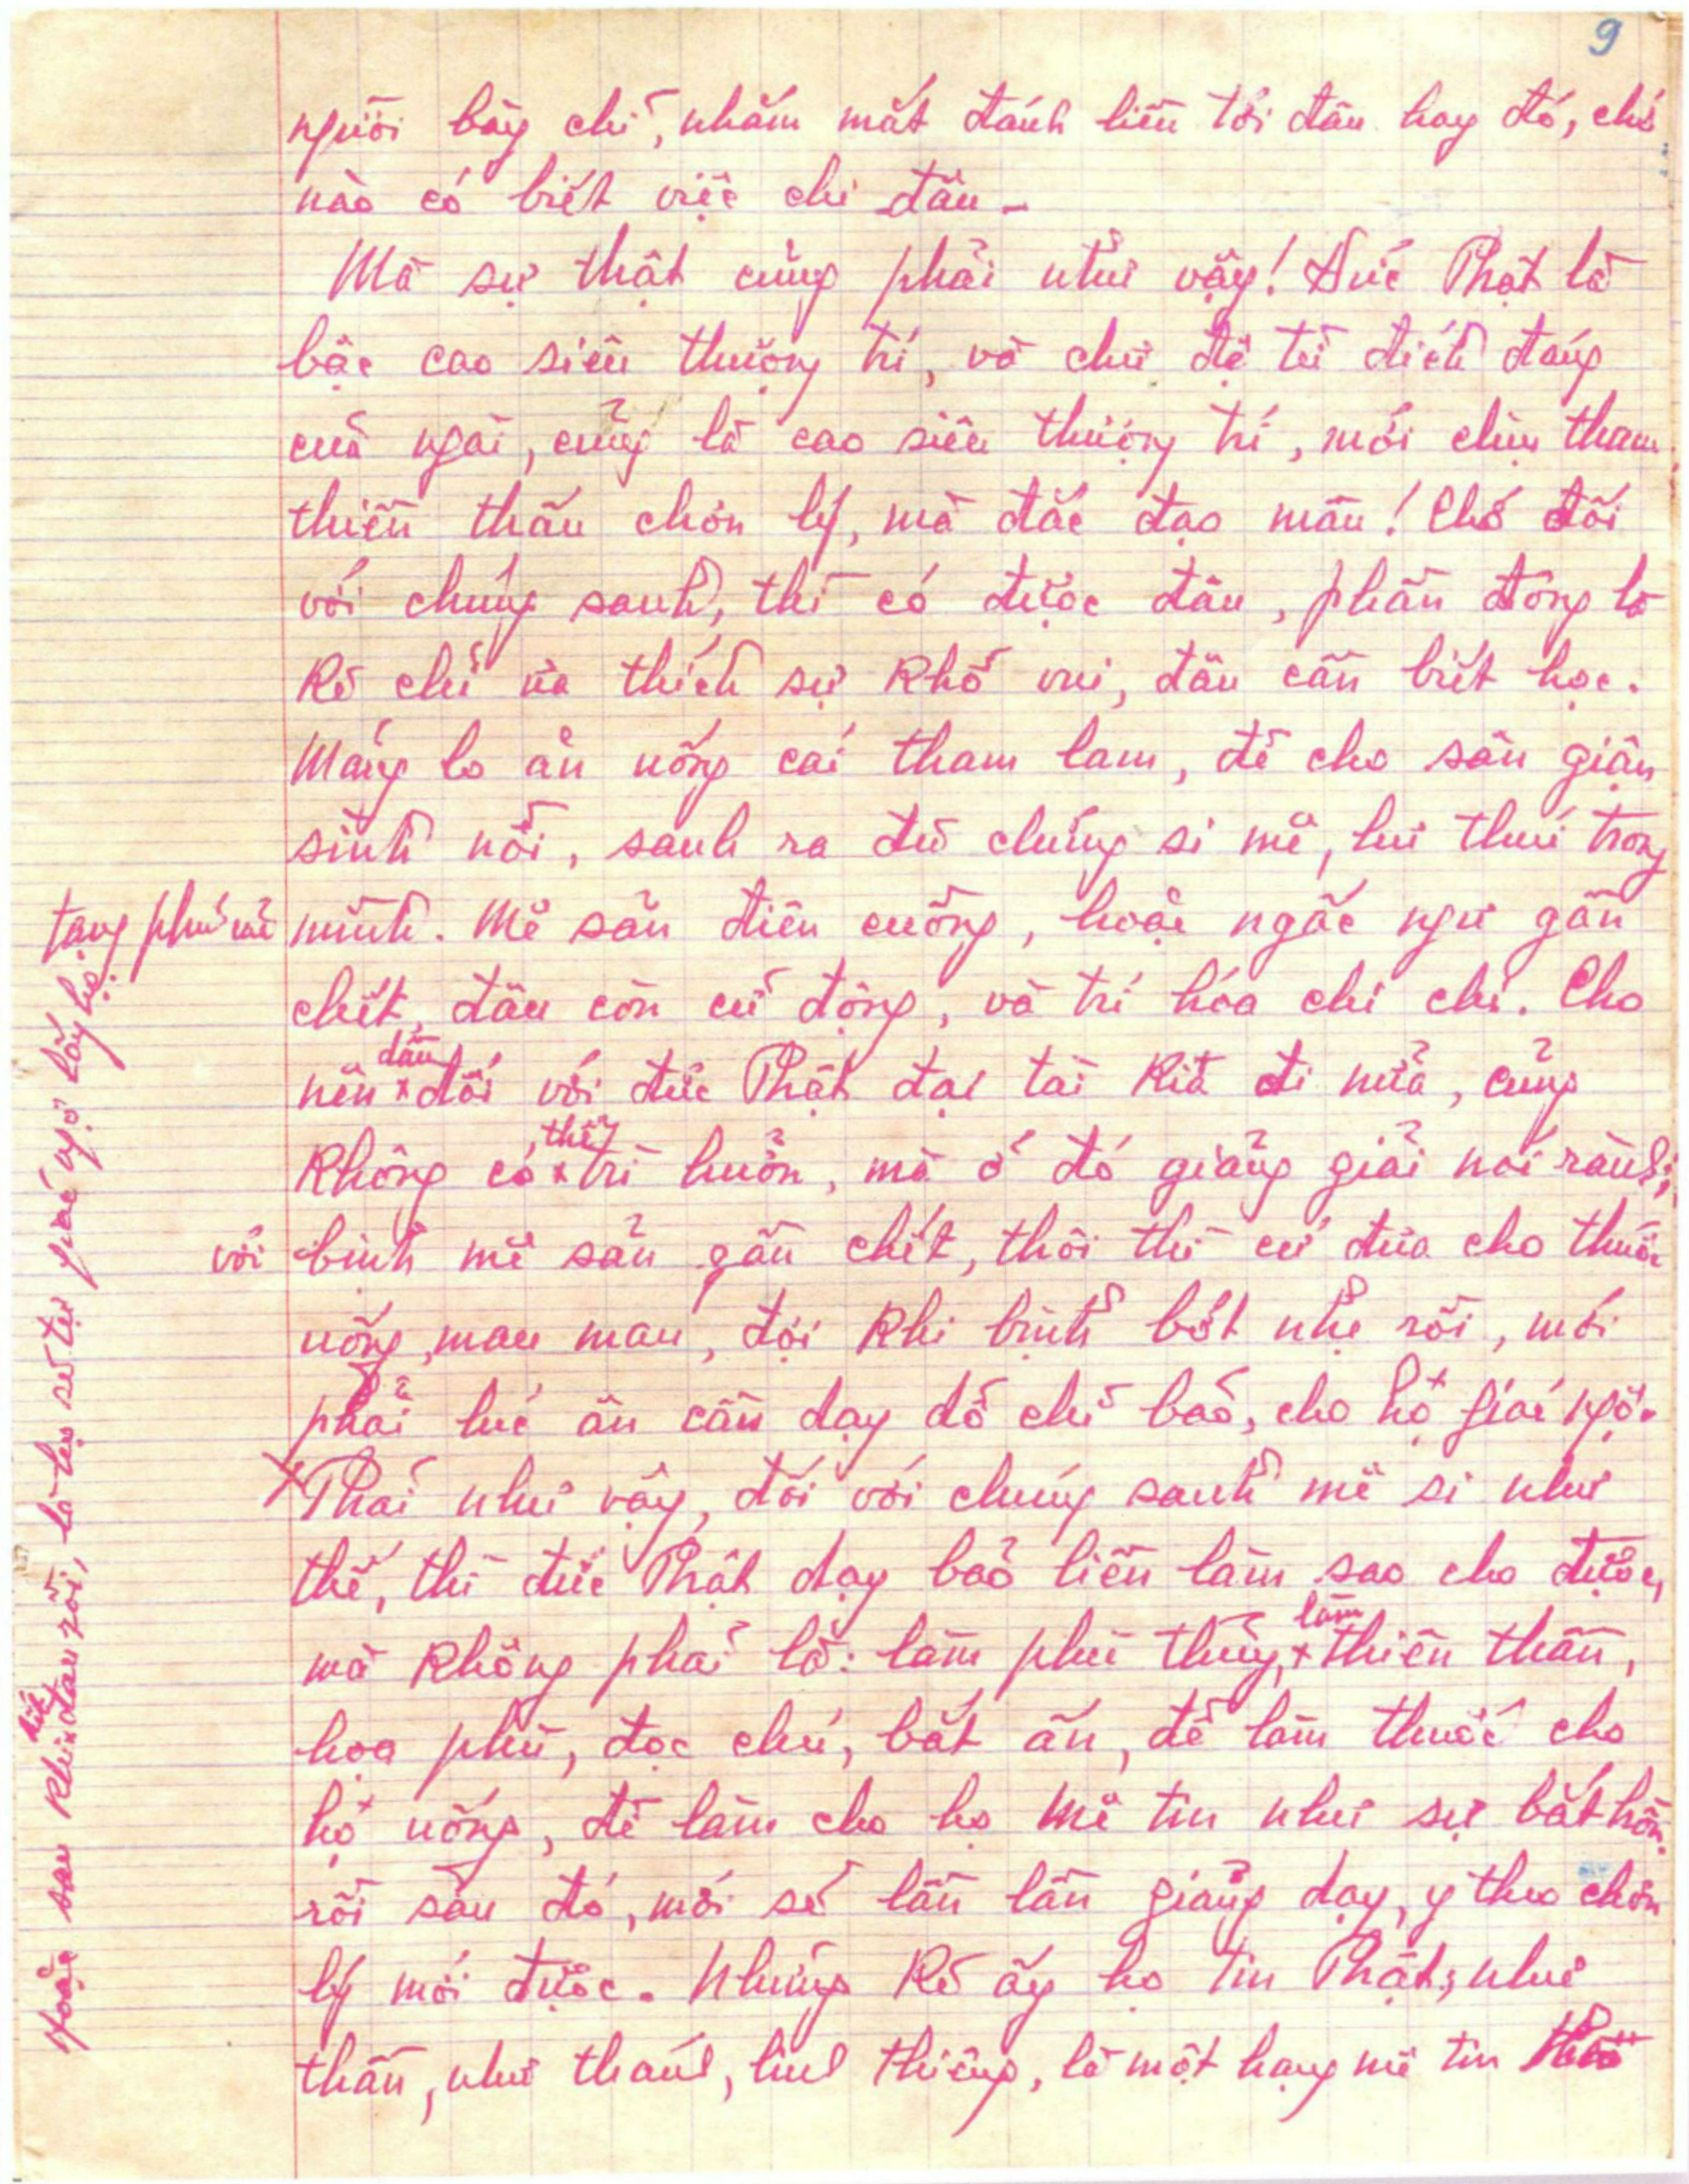 9
người bày chỉ, nhắm mắt đánh liều tới đâu hay đó, chớ
nào có biết việc chi đâu -
Mà sự thật cũng phải như vậy! Đức Phật là
bậc cao siêu thượng trí, và chư đệ tử đích đáng
của ngài, cũng là cao siêu thượng trí, mới chịu tham
thiền thấu chơn lý, mà đắc đạo mầu! Chớ đối
với chúng sanh, thì có được đâu, phần đông là
kẻ chỉ ưa thích sự khổ vui, đâu cần biết học.
Mảng lo ăn uống cái tham lam, để cho sân giận
sình nổi, sanh ra đủ chứng si mê, hư thúi trong
tạng phủ
mình. Mê sản điên cuồng, hoặc ngắc ngư gần
chết, đâu còn cử động, và trí hóa chi chi. Cho
dẫu
nên x đối với đức Phật đại tài kia đi nữa, cũng
thể
không có x trì huởn, mà ở đó giảng giải nói rành;
với bịnh mê sản gần chết, thôi thì cứ đưa cho thuốc
uống, mau mau, đợi khi bịnh bớt nhẹ rồi, mới
phải lúc ân cần dạy dỗ chỉ bảo, cho họ giác ngộ.
x Phải như vậy, đối với chúng sanh mê si như
thế, thì đức Phật dạy bảo liền làm sao cho được,
làm
mà không phải là: làm phù thủy, x thiên thần,
họa phù, đọc chú, bắt ấn, để làm thuốc cho
họ uống, để làm cho họ mê tin như sự bắt hồn.
rồi sau đó, mới sẽ lần lần giảng dạy, y theo chơn
lý mới được. Những kẻ ấy họ tin Phật; như
thần, như thánh, linh thiêng, là một hạng mê tín
hoặc sau khi x đau rồi, là họ sẽ tự giác ngộ lấy họ.